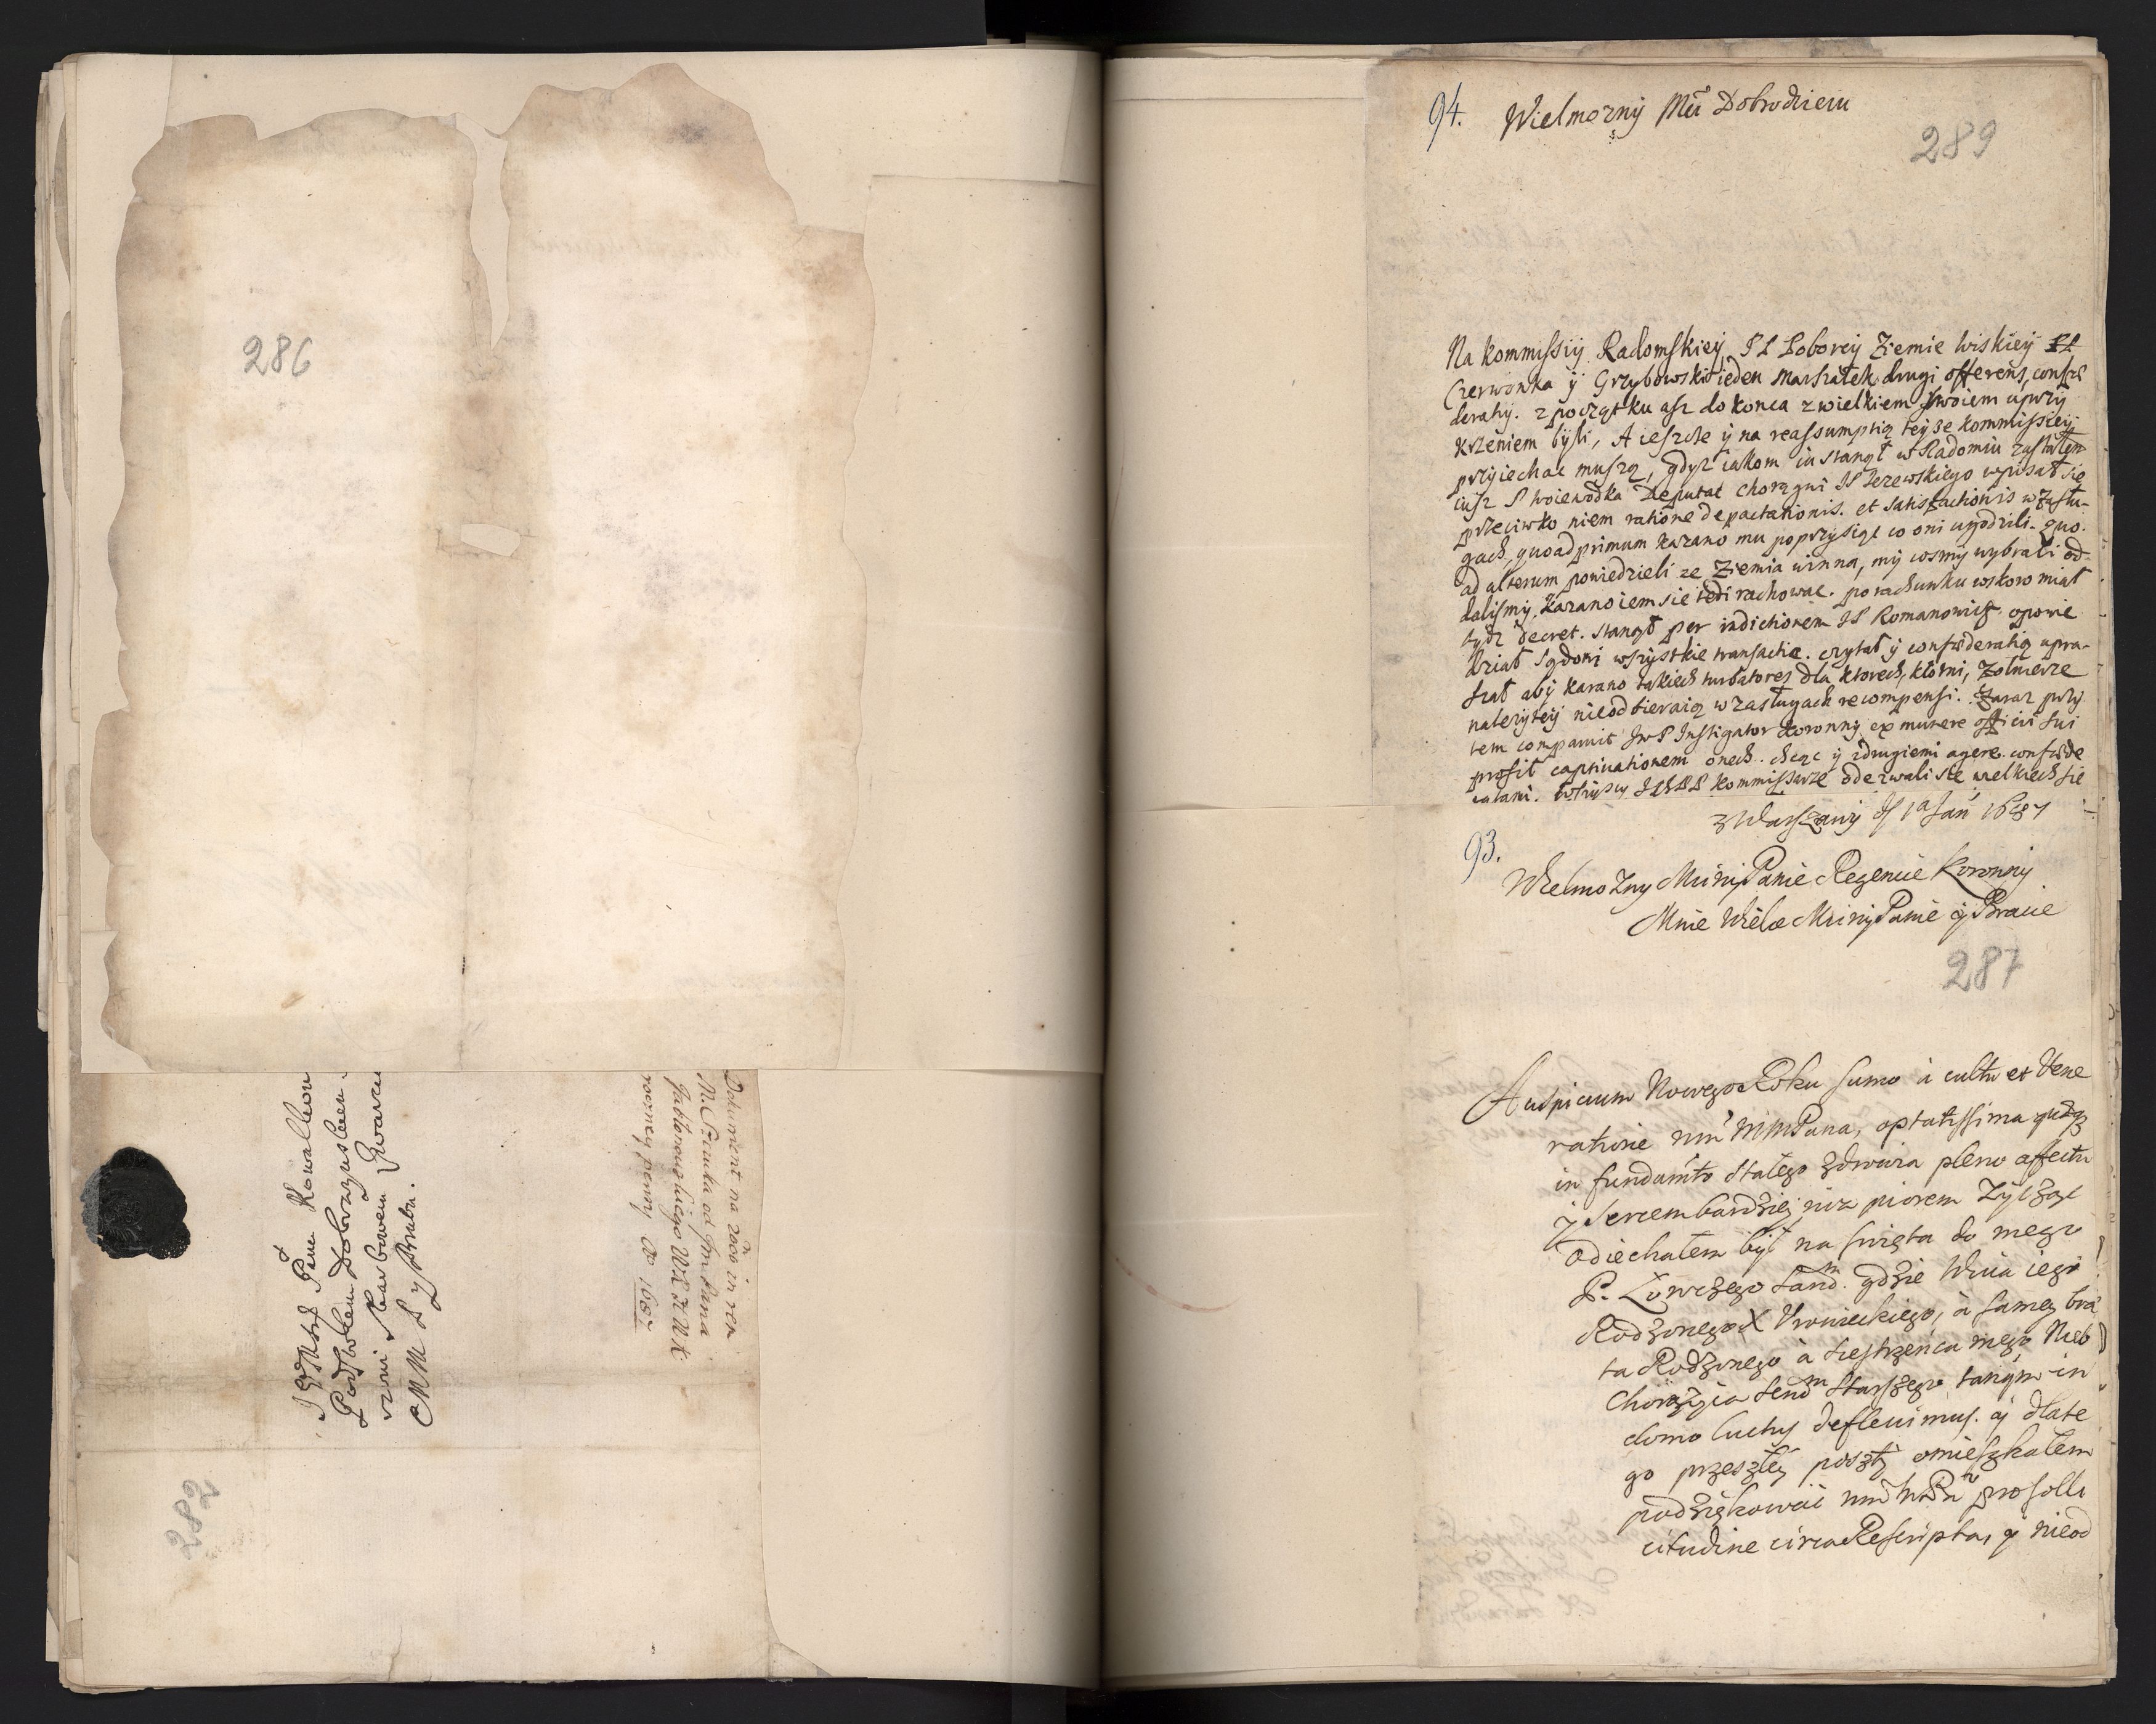 286
J Pan
Podstolem Dobrzynskiem
Skarbowem
Dokument na 2000 in rem
M. Szczuka od Jm Pana
Jabłonowskiego
roczney pensy 1687
282
94. Wielmozny Mci Dobrodzieiu
289
Na Kommissiy Radomskiey Poborcy Ziemie Wiskiey
Czerwonka ÿ Grzybowski ieden Marszałek drugi offerens, confae
deratiy. z początku asz do konca z wielkiem swoiem uprzy
krzeniem byli, A ieszcze ÿ na reassumptią teyze kommissiey
przyiechac muszą, gdysz iakom ia stanął w Radomiu zastałem
iusz P Woiewodka Deputat chorągwi Jezewskiego wpisał się
przeciwko niem ratione depactationis. et satisfactionis w zasłu-
gach, quoad primum kazano mu poprzysiąc co oni ugodzili. quo
ad alterum powiedzieli ze Ziemia winna, my cosmy wybrali od-
dalismy. Kazano iem sie tedi rachowac. po rachunku wskoro miał
bydz decret. stanął per indictionem JP Romanowicz opowie
dział sądowi wszystkie transactie. czytał ÿ confaederatią upra-
szał aby karano takiech turbatores dla ktorech, kłotni, Zołnierze
nalezytey nieodbieraią w zasługach recompensi. Zaraz przy
tem comparuit JmP Instigator Koronny ex munere officii sui
prosił captivationem onech. chcąc ÿ zdrugiemi agere confaede
ratami. Wszyscy Kommissarze odezwali sie wielkiech sie
z Warszawy 1a Jan 1687
93.
Wielmozny Mciwy Panie Regencie Koronny
Mnie Wielce Mciwy Panie ÿ Bracie
287
Auspicium Nowego Roku sumo à cultu et Vene
ratione MMPana, optatissima
in fundamto stałego zdrowia pleno affectu
ÿ sercem bardziey niz piorem Zycząc
Odiechałem był na swięta do mego
P. Łowczego Sand. gdzie Wuia iego
Rodzonego X Wronieckiego, à samey bra
ta Rodzonego à siestrzenca mego
Chorązyca Send Starszego in
domo luctus deflevimus. ÿ dlate
go przeszłey poszty omieszkałem
podziękowac pro solli
citudine circa Rescripta, ÿ nieod